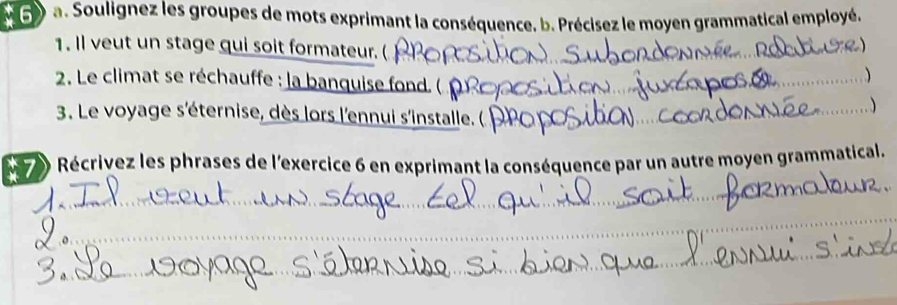 6 a. Soulignez les groupes de mots exprimant la conséquence. b. Précisez le moyen grammatical employé.
1. Il veut un stage qui soit formateur. (Proposition Subordonnée Relative)
2. Le climat se réchauffe : la banquise fond. (proposition juxtaposée)
3. Le voyage s'éternise, dès lors l'ennui s'installe. (proposition coordonnée)
7 Récrivez les phrases de l'exercice 6 en exprimant la conséquence par un autre moyen grammatical.
1. Il veut un stage tel qu'il soit formateur.
2.
3. Le voyage s'éternise si bien que l'ennui s'inst